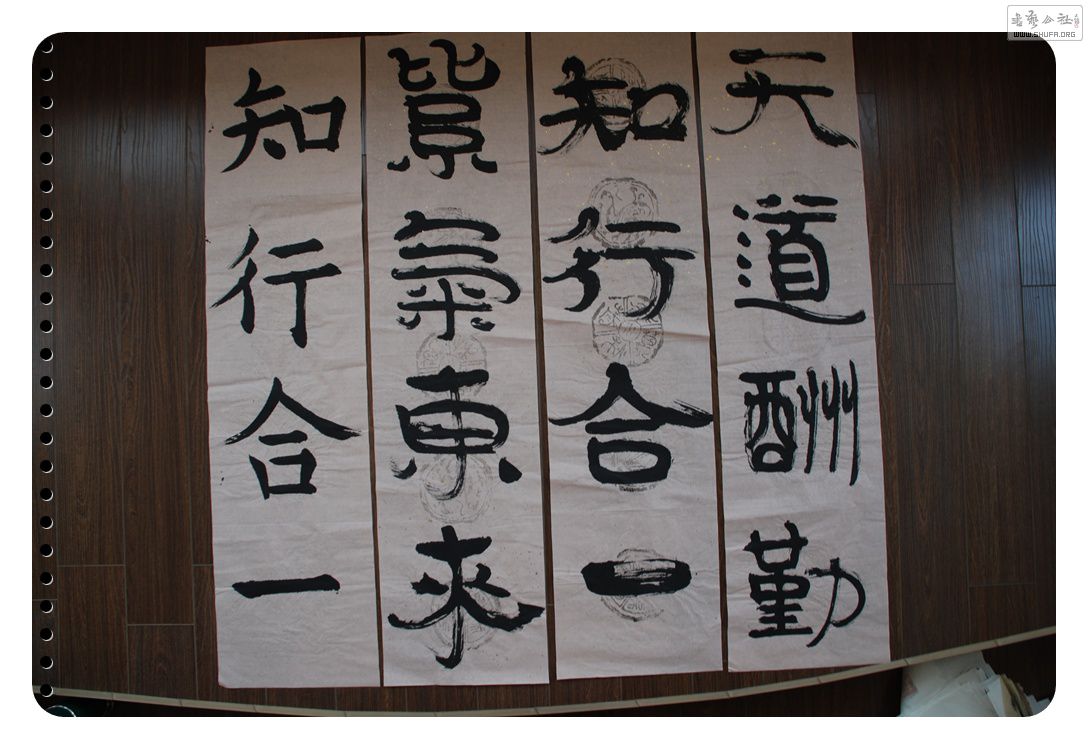 天道酬勤
知行合一
紫氣東來
知行合一
书艺公社
WWW.SHUFA.ORG